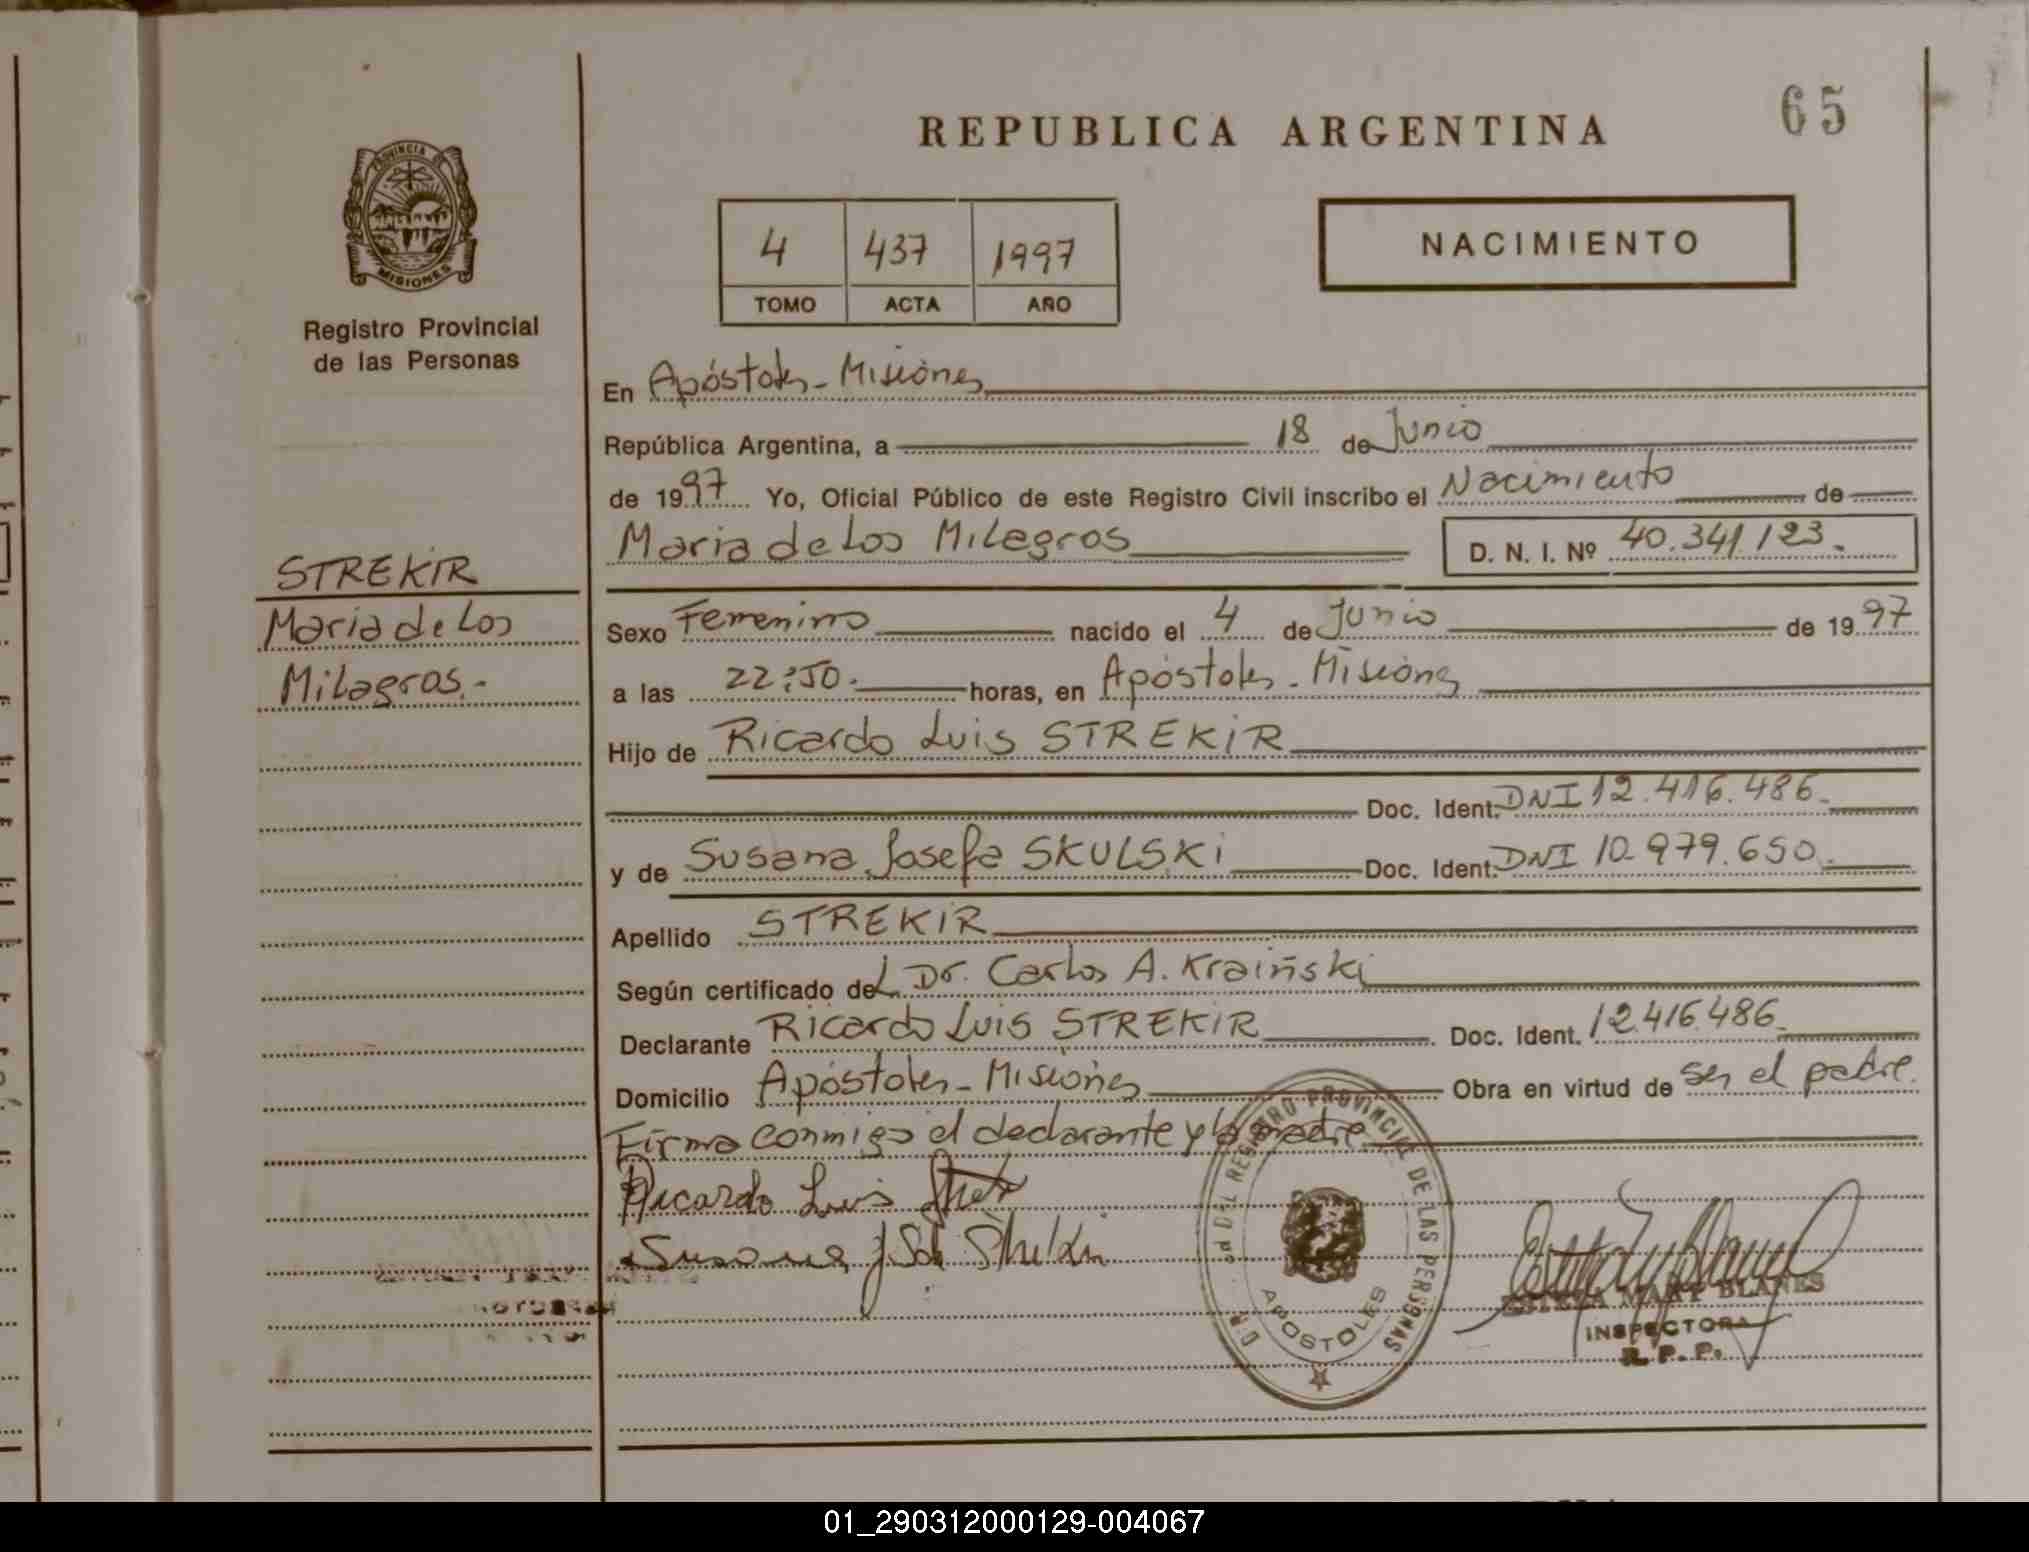 65
REPUBLICA ARGENTINA
PROVINCIA DE
MISIONES
Registro Provincial
de las Personas
4 437 1997
TOMO ACTA AÑO
NACIMIENTO
En Apóstoles - Misiones
República Argentina, a 18 de Junio
de 1997 Yo, Oficial Público de este Registro Civil inscribo el Nacimiento de
Maria de Los Milagros D. N. I. Nº 40.341.123.
STREKIR
Maria de Los
Milagros.-
Sexo Femenino nacido el 4 de Junio de 1997
a las 22:50. horas, en Apóstoles - Misiones
Hijo de Ricardo Luis STREKIR
Doc. Ident. DNI 12.416.486.
y de Susana Josefa SKULSKi Doc. Ident. DNI 10.979.650.
Apellido STREKIR
Según certificado del Dr. Carlos A. Kraiñski
Declarante Ricardo Luis STREKIR Doc. Ident. 12.416.486.
Domicilio Apóstoles - Misiones Obra en virtud de ser el padre.
Firma conmigo el declarante y la madre.
Ricardo Luis
Susana J
REGISTRO PROVINCIAL DE LAS PERSONAS
APOSTOLES
MARY BLANES
INSPECTORA
R. P. P.
01_290312000129-004067